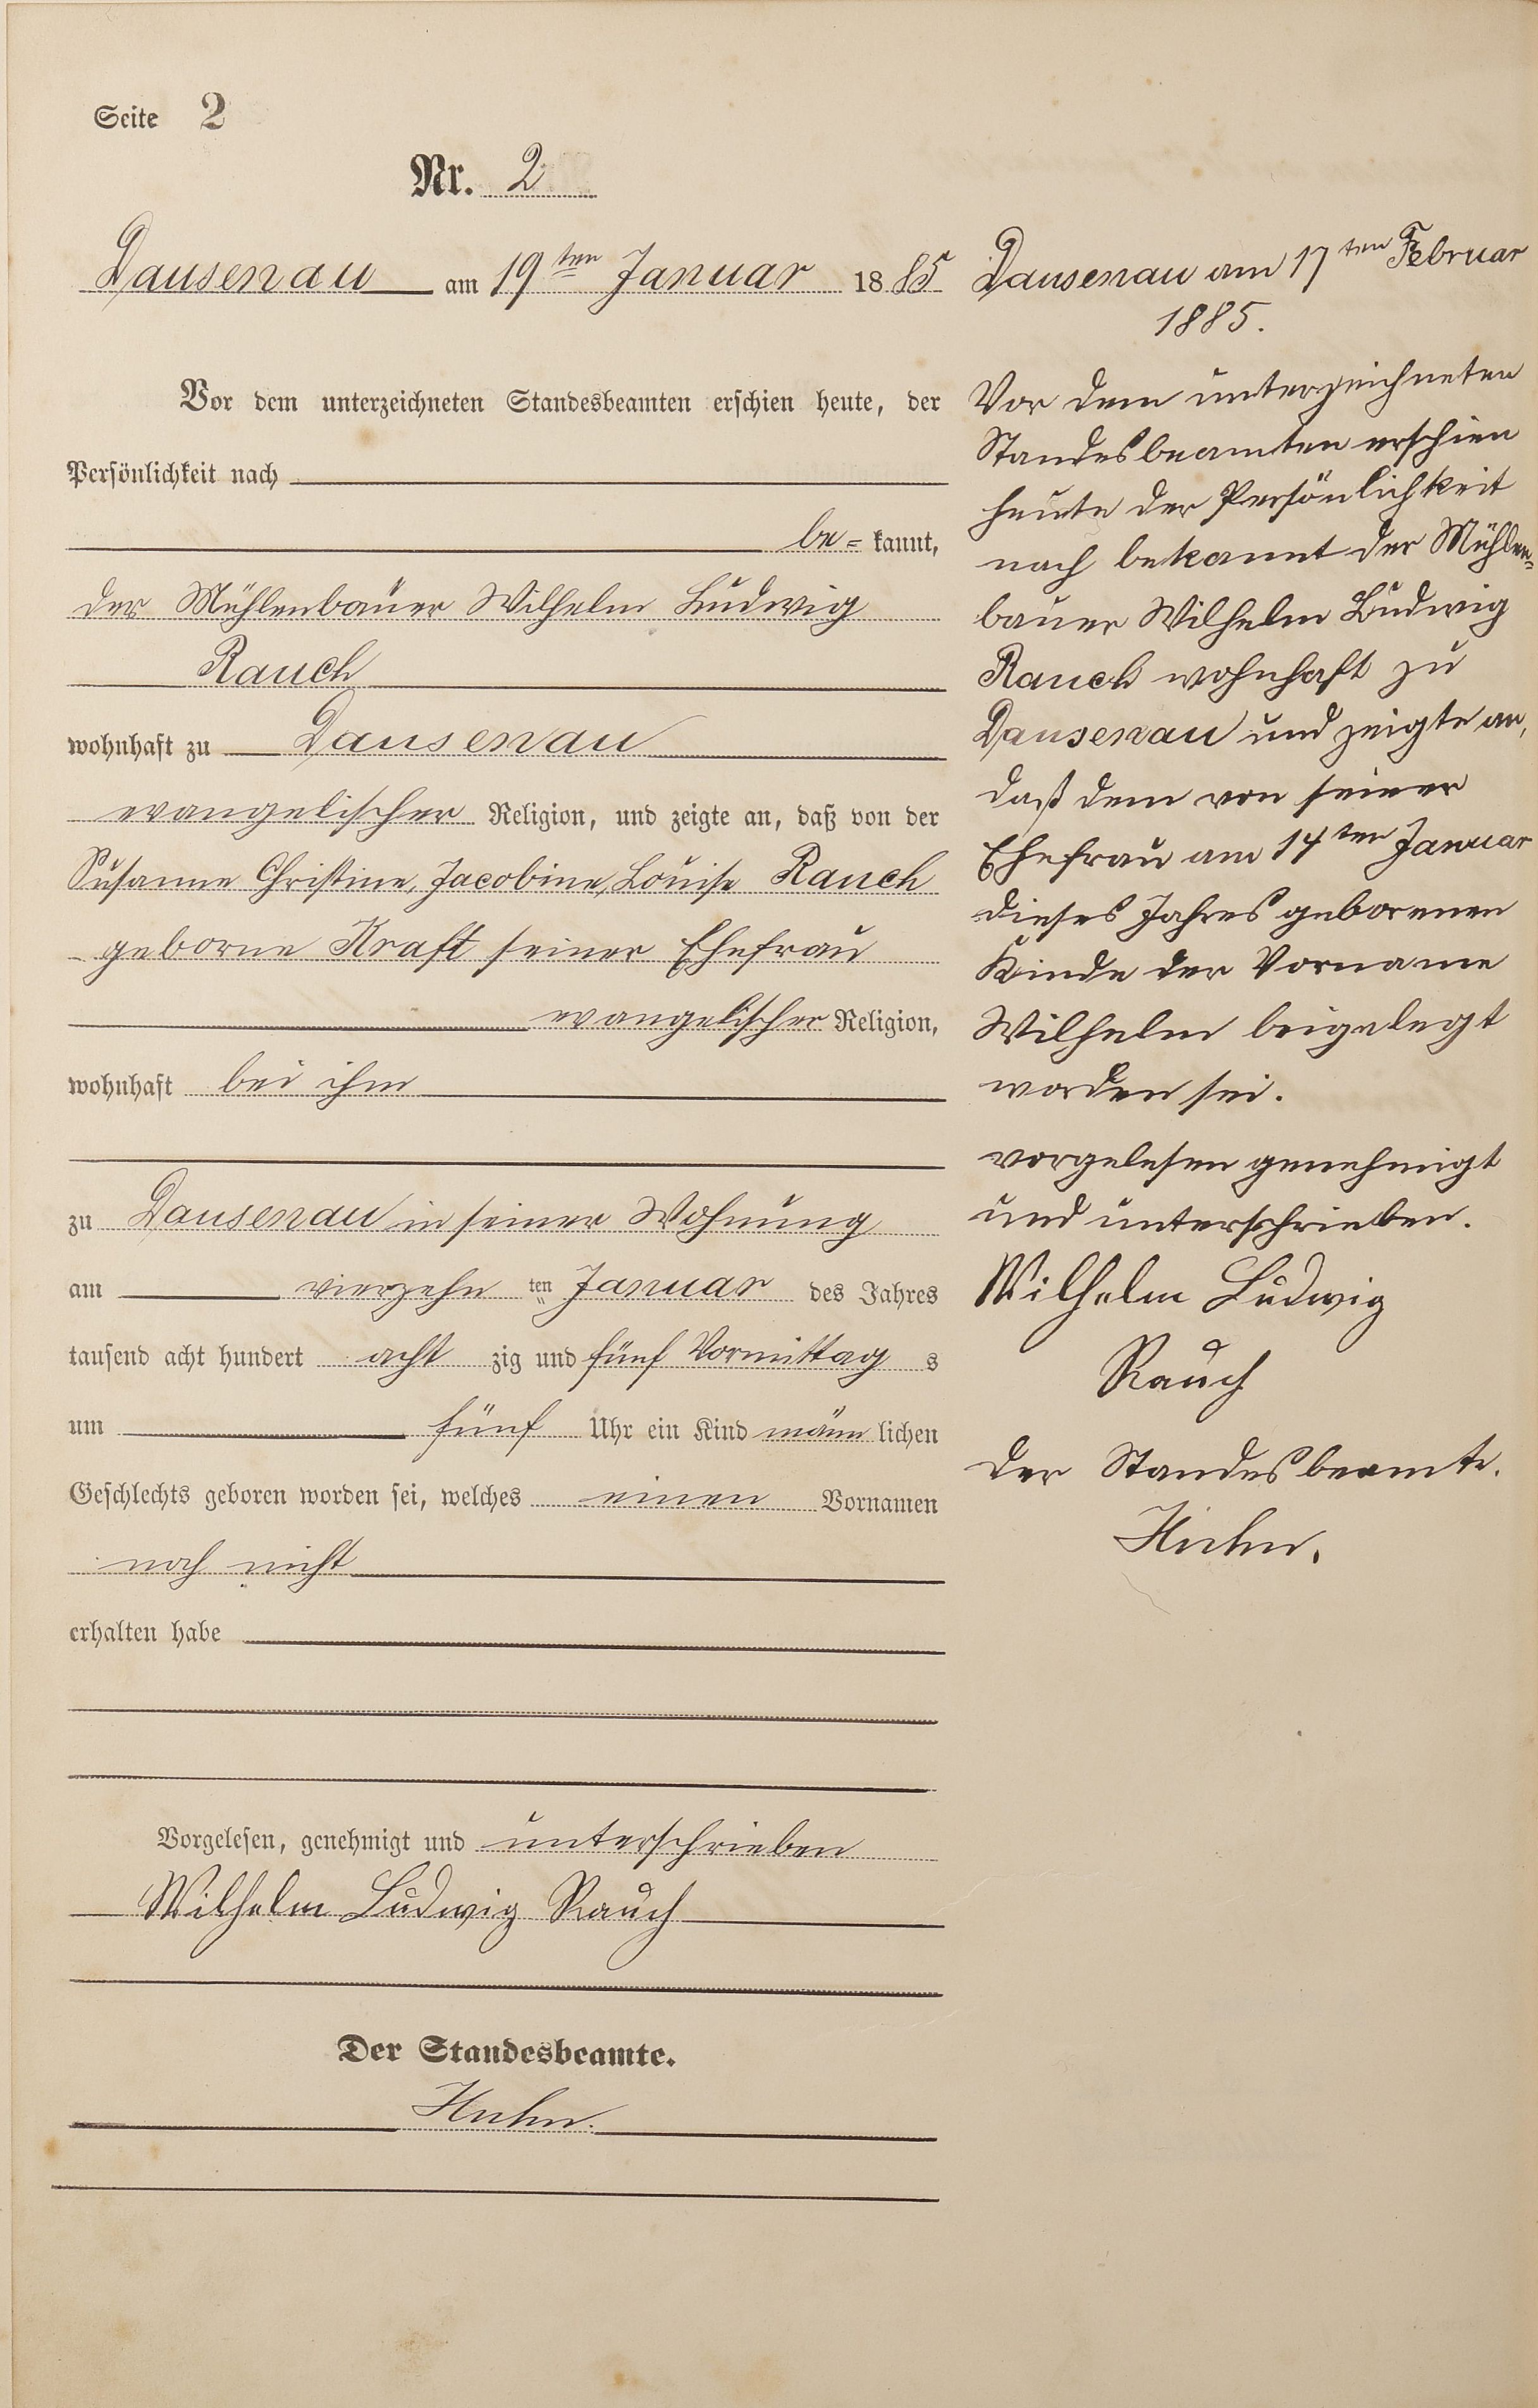 Seite 2
Nr. 2
Dausenau am 19ten Januar 1885
Vor dem unterzeichneten Standesbeamten erschien heute, der
Persönlichkeit nach
be= kannt,
der Mühlenbauer Wilhelm Ludwig
Rauch
wohnhaft zu Dausenau
evangelischer Religion, und zeigte an, daß von der
Susanne Christine, Jacobine, Louise Rauch
geborne Kraft seiner Ehefrau
evangelischer Religion,
wohnhaft bei ihm
zu Dausenau in seiner Wohnung
am vierzehn ten Januar des Jahres
tausend acht hundert acht zig und fünf Vormittag s
um fünf Uhr ein Kind männ lichen
Geschlechts geboren worden sei, welches einen Vornamen
noch nicht
erhalten habe
Vorgelesen, genehmigt und unterschrieben
Wilhelm Ludwig Rauch
Der Standesbeamte.
Huhn.
Dausenau am 17ten Februar
1885.
Vor dem unterzeichneten
Standesbeamten erschien
heute der Persönlichkeit
nach bekannt der Mühlen=
bauer Wilhelm Ludwig
Rauch wohnhaft zu
Dausenau und zeigte an,
daß dem von seiner
Ehefrau am 14ten Januar
dieses Jahres geborenen
Kinde der Vorname
Wilhelm beigelegt
worden sei.
vorgelesen genehmigt
und unterschrieben.
Wilhelm Ludwig
Rauch
der Standesbeamte.
Huhn.